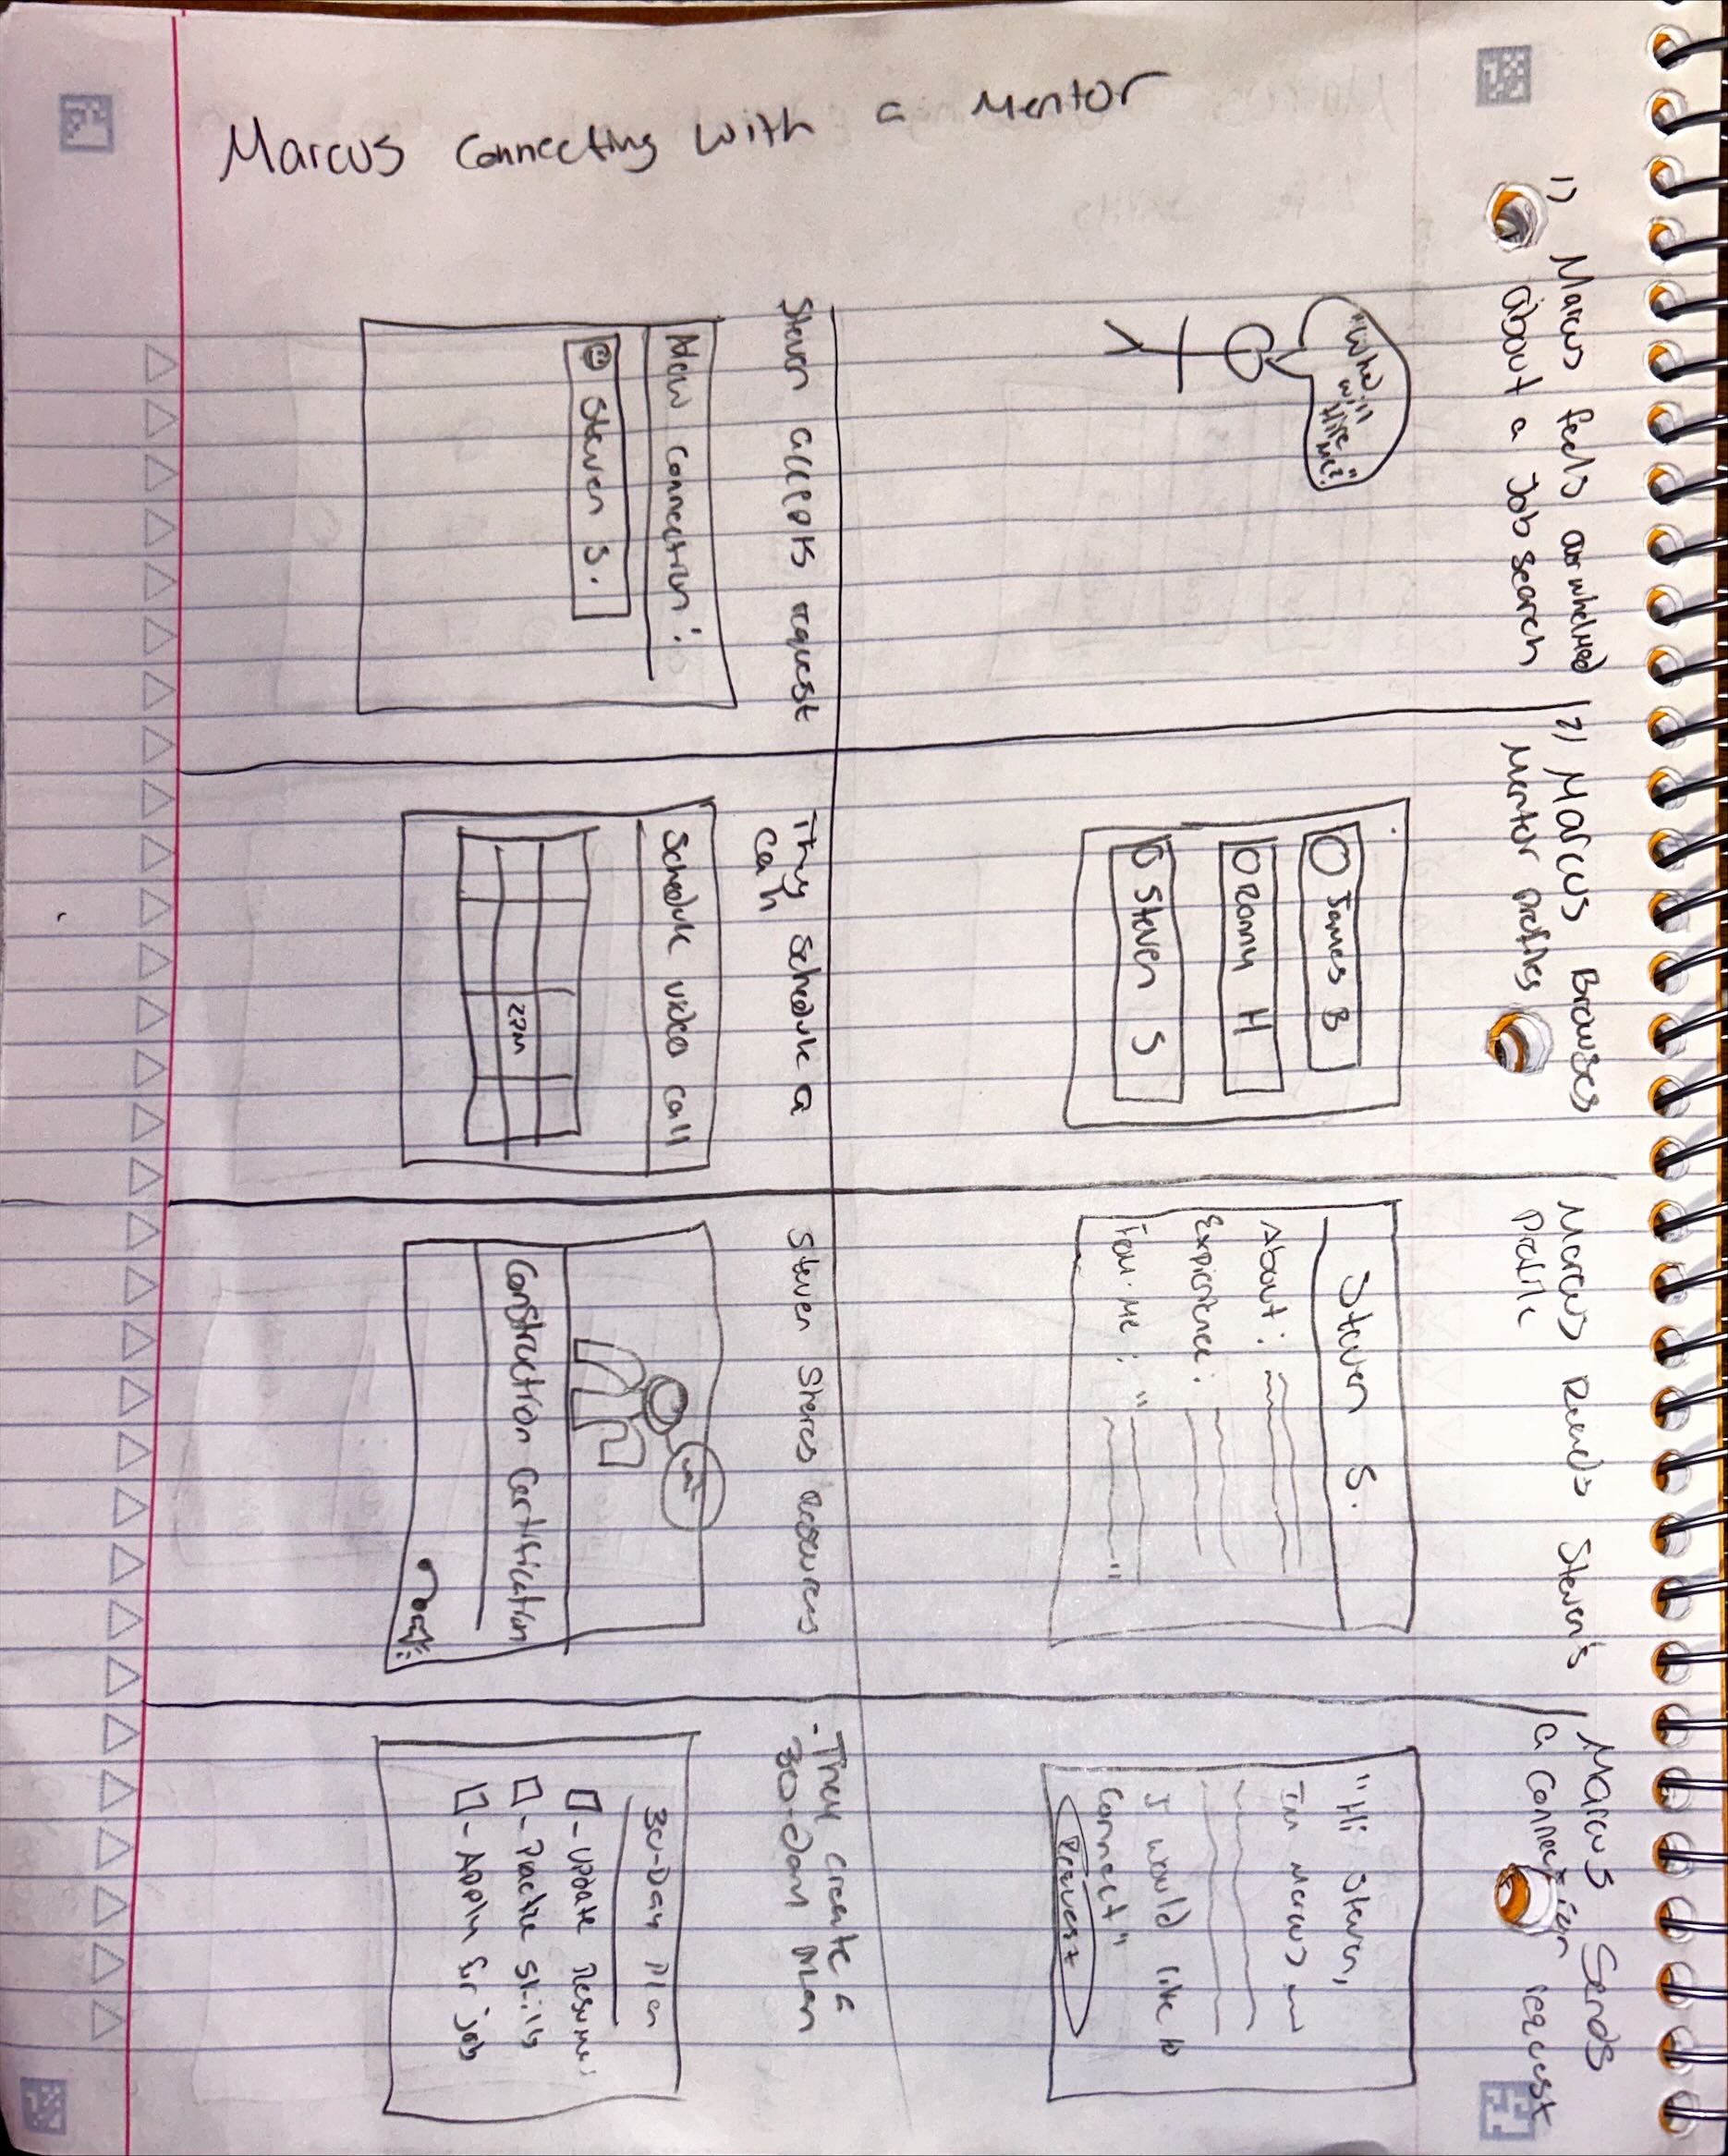 Marcus Connecting with a Mentor
1) Marcus feels overwhelmed
about a Job search
"Who
will
Hire
me?"
2) Marcus Browses
Mentor profiles
James B
Ronny H
Steven S
Marcus Reads Steven's
Profile
Steven S.
About:
Experience:
From Me: "
"
Marcus Sends
a Connection request
"Hi Steven,
I'm Marcus and
I would like to
Connect"
Request
Steven accepts request
New Connection:
Steven S.
They schedule a
Call
Schedule video call
2PM
Steven Shares Resources
Construction Certification
- They create a
30-Day Plan
30-Day Plan
- Update Resume
- Practice skills
- Apply for job